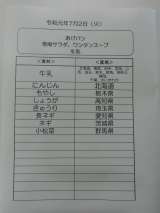 令和元年7月2日（火）
あげパン
春雨サラダ、ワンタンスープ
牛乳
＜食材＞ ＜産地＞ ＜食材＞ ＜産地＞
牛乳
にんじん 北海道
もやし 栃木県
しょうが 高知県
きゅうり 埼玉県
長ネギ 愛知県
ネギ 茨城県
小松菜 群馬県